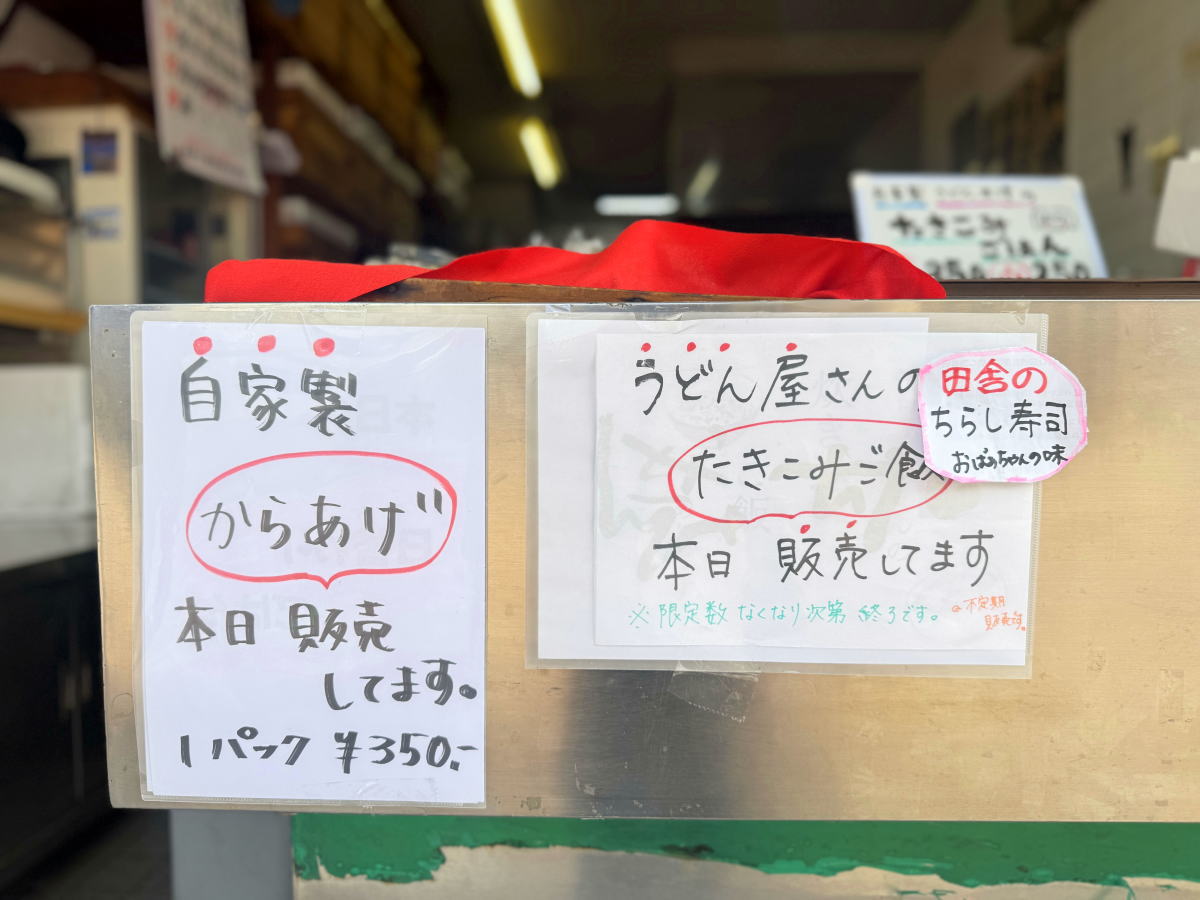 自家製
からあげ
本日 販売
してます。
1パック ¥350.-
うどん屋さんの
たきこみご飯
本日 販売してます
※限定数 なくなり次第 終了です。
不定期
販売です。
田舎の
ちらし寿司
おばあちゃんの味
たきこみ
ごはん
250
250